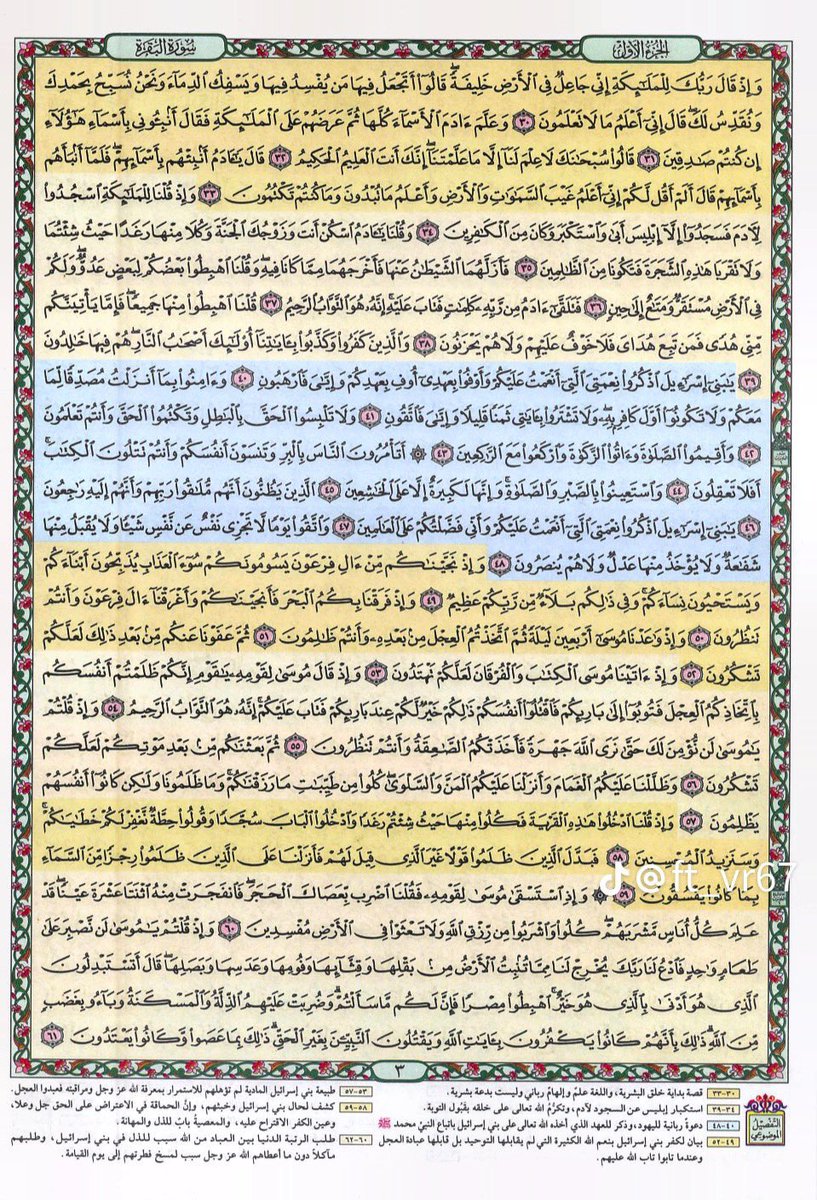 الجزء الأول
سورة البقرة
وَإِذْ قَالَ رَبُّكَ لِلْمَلَٰٓئِكَةِ إِنِّي جَاعِلٌ فِي الْأَرْضِ خَلِيفَةً ۖ قَالُوٓا۟ أَتَجْعَلُ فِيهَا مَن يُفْسِدُ فِيهَا وَيَسْفِكُ الدِّمَآءَ وَنَحْنُ نُسَبِّحُ بِحَمْدِكَ
وَنُقَدِّسُ لَكَ ۖ قَالَ إِنِّيٓ أَعْلَمُ مَا لَا تَعْلَمُونَ ٣٠ وَعَلَّمَ ءَادَمَ الْأَسْمَآءَ كُلَّهَا ثُمَّ عَرَضَهُمْ عَلَى الْمَلَٰٓئِكَةِ فَقَالَ أَنۢبِـُٔونِي بِأَسْمَآءِ هَٰٓؤُلَآءِ
إِن كُنتُمْ صَٰدِقِينَ ٣١ قَالُوا۟ سُبْحَٰنَكَ لَا عِلْمَ لَنَآ إِلَّا مَا عَلَّمْتَنَآ ۖ إِنَّكَ أَنتَ الْعَلِيمُ الْحَكِيمُ ٣٢ قَالَ يَٰٓـَٔادَمُ أَنۢبِئْهُم بِأَسْمَآئِهِمْ ۖ فَلَمَّآ أَنۢبَأَهُم
بِأَسْمَآئِهِمْ قَالَ أَلَمْ أَقُل لَّكُمْ إِنِّيٓ أَعْلَمُ غَيْبَ السَّمَٰوَٰتِ وَالْأَرْضِ وَأَعْلَمُ مَا تُبْدُونَ وَمَا كُنتُمْ تَكْتُمُونَ ٣٣ وَإِذْ قُلْنَا لِلْمَلَٰٓئِكَةِ اسْجُدُوا۟
لِـَٔادَمَ فَسَجَدُوٓا۟ إِلَّآ إِبْلِيسَ أَبَىٰ وَاسْتَكْبَرَ وَكَانَ مِنَ الْكَٰفِرِينَ ٣٤ وَقُلْنَا يَٰٓـَٔادَمُ اسْكُنْ أَنتَ وَزَوْجُكَ الْجَنَّةَ وَكُلَا مِنْهَا رَغَدًا حَيْثُ شِئْتُمَا
وَلَا تَقْرَبَا هَٰذِهِ الشَّجَرَةَ فَتَكُونَا مِنَ الظَّٰلِمِينَ ٣٥ فَأَزَلَّهُمَا الشَّيْطَٰنُ عَنْهَا فَأَخْرَجَهُمَا مِمَّا كَانَا فِيهِ ۖ وَقُلْنَا اهْبِطُوا۟ بَعْضُكُمْ لِبَعْضٍ عَدُوٌّ ۖ وَلَكُمْ
فِي الْأَرْضِ مُسْتَقَرٌّ وَمَتَٰعٌ إِلَىٰ حِينٍ ٣٦ فَتَلَقَّىٰٓ ءَادَمُ مِن رَّبِّهِ كَلِمَٰتٍ فَتَابَ عَلَيْهِ ۚ إِنَّهُ هُوَ التَّوَّابُ الرَّحِيمُ ٣٧ قُلْنَا اهْبِطُوا۟ مِنْهَا جَمِيعًا ۖ فَإِمَّا يَأْتِيَنَّكُم
مِّنِّي هُدًى فَمَن تَبِعَ هُدَايَ فَلَا خَوْفٌ عَلَيْهِمْ وَلَا هُمْ يَحْزَنُونَ ٣٨ وَالَّذِينَ كَفَرُوا۟ وَكَذَّبُوا۟ بِـَٔايَٰتِنَآ أُو۟لَٰٓئِكَ أَصْحَٰبُ النَّارِ ۖ هُمْ فِيهَا خَٰلِدُونَ
٣٩ يَٰبَنِيٓ إِسْرَٰٓءِيلَ اذْكُرُوا۟ نِعْمَتِيَ الَّتِيٓ أَنْعَمْتُ عَلَيْكُمْ وَأَوْفُوا۟ بِعَهْدِيٓ أُوفِ بِعَهْدِكُمْ وَإِيَّٰيَ فَارْهَبُونِ ٤٠ وَءَامِنُوا۟ بِمَآ أَنزَلْتُ مُصَدِّقًا لِّمَا
مَعَكُمْ وَلَا تَكُونُوٓا۟ أَوَّلَ كَافِرٍۭ بِهِ ۖ وَلَا تَشْتَرُوا۟ بِـَٔايَٰتِي ثَمَنًا قَلِيلًا وَإِيَّٰيَ فَاتَّقُونِ ٤١ وَلَا تَلْبِسُوا۟ الْحَقَّ بِالْبَٰطِلِ وَتَكْتُمُوا۟ الْحَقَّ وَأَنتُمْ تَعْلَمُونَ
٤٢ وَأَقِيمُوا۟ الصَّلَوٰةَ وَءَاتُوا۟ الزَّكَوٰةَ وَارْكَعُوا۟ مَعَ الرَّٰكِعِينَ ٤٣ ۞ أَتَأْمُرُونَ النَّاسَ بِالْبِرِّ وَتَنسَوْنَ أَنفُسَكُمْ وَأَنتُمْ تَتْلُونَ الْكِتَٰبَ ۚ
أَفَلَا تَعْقِلُونَ ٤٤ وَاسْتَعِينُوا۟ بِالصَّبْرِ وَالصَّلَوٰةِ ۚ وَإِنَّهَا لَكَبِيرَةٌ إِلَّا عَلَى الْخَٰشِعِينَ ٤٥ الَّذِينَ يَظُنُّونَ أَنَّهُم مُّلَٰقُوا۟ رَبِّهِمْ وَأَنَّهُمْ إِلَيْهِ رَٰجِعُونَ
٤٦ يَٰبَنِيٓ إِسْرَٰٓءِيلَ اذْكُرُوا۟ نِعْمَتِيَ الَّتِيٓ أَنْعَمْتُ عَلَيْكُمْ وَأَنِّي فَضَّلْتُكُمْ عَلَى الْعَٰلَمِينَ ٤٧ وَاتَّقُوا۟ يَوْمًا لَّا تَجْزِي نَفْسٌ عَن نَّفْسٍ شَيْـًٔا وَلَا يُقْبَلُ مِنْهَا
شَفَٰعَةٌ وَلَا يُؤْخَذُ مِنْهَا عَدْلٌ وَلَا هُمْ يُنصَرُونَ ٤٨ وَإِذْ نَجَّيْنَٰكُم مِّنْ ءَالِ فِرْعَوْنَ يَسُومُونَكُمْ سُوٓءَ الْعَذَابِ يُذَبِّحُونَ أَبْنَآءَكُمْ
وَيَسْتَحْيُونَ نِسَآءَكُمْ ۚ وَفِي ذَٰلِكُم بَلَآءٌ مِّن رَّبِّكُمْ عَظِيمٌ ٤٩ وَإِذْ فَرَقْنَا بِكُمُ الْبَحْرَ فَأَنجَيْنَٰكُمْ وَأَغْرَقْنَآ ءَالَ فِرْعَوْنَ وَأَنتُمْ
تَنظُرُونَ ٥٠ وَإِذْ وَٰعَدْنَا مُوسَىٰٓ أَرْبَعِينَ لَيْلَةً ثُمَّ اتَّخَذْتُمُ الْعِجْلَ مِنۢ بَعْدِهِ وَأَنتُمْ ظَٰلِمُونَ ٥١ ثُمَّ عَفَوْنَا عَنكُم مِّنۢ بَعْدِ ذَٰلِكَ لَعَلَّكُمْ
تَشْكُرُونَ ٥٢ وَإِذْ ءَاتَيْنَا مُوسَى الْكِتَٰبَ وَالْفُرْقَانَ لَعَلَّكُمْ تَهْتَدُونَ ٥٣ وَإِذْ قَالَ مُوسَىٰ لِقَوْمِهِ يَٰقَوْمِ إِنَّكُمْ ظَلَمْتُمْ أَنفُسَكُم
بِاتِّخَاذِكُمُ الْعِجْلَ فَتُوبُوٓا۟ إِلَىٰ بَارِئِكُمْ فَاقْتُلُوٓا۟ أَنفُسَكُمْ ذَٰلِكُمْ خَيْرٌ لَّكُمْ عِندَ بَارِئِكُمْ فَتَابَ عَلَيْكُمْ ۚ إِنَّهُ هُوَ التَّوَّابُ الرَّحِيمُ ٥٤ وَإِذْ قُلْتُمْ
يَٰمُوسَىٰ لَن نُّؤْمِنَ لَكَ حَتَّىٰ نَرَى اللَّهَ جَهْرَةً فَأَخَذَتْكُمُ الصَّٰعِقَةُ وَأَنتُمْ تَنظُرُونَ ٥٥ ثُمَّ بَعَثْنَٰكُم مِّنۢ بَعْدِ مَوْتِكُمْ لَعَلَّكُمْ
تَشْكُرُونَ ٥٦ وَظَلَّلْنَا عَلَيْكُمُ الْغَمَامَ وَأَنزَلْنَا عَلَيْكُمُ الْمَنَّ وَالسَّلْوَىٰ ۖ كُلُوا۟ مِن طَيِّبَٰتِ مَا رَزَقْنَٰكُمْ ۖ وَمَا ظَلَمُونَا وَلَٰكِن كَانُوٓا۟ أَنفُسَهُمْ
يَظْلِمُونَ ٥٧ وَإِذْ قُلْنَا ادْخُلُوا۟ هَٰذِهِ الْقَرْيَةَ فَكُلُوا۟ مِنْهَا حَيْثُ شِئْتُمْ رَغَدًا وَادْخُلُوا۟ الْبَابَ سُجَّدًا وَقُولُوا۟ حِطَّةٌ نَّغْفِرْ لَكُمْ خَطَٰيَٰكُمْ ۚ
وَسَنَزِيدُ الْمُحْسِنِينَ ٥٨ فَبَدَّلَ الَّذِينَ ظَلَمُوا۟ قَوْلًا غَيْرَ الَّذِي قِيلَ لَهُمْ فَأَنزَلْنَا عَلَى الَّذِينَ ظَلَمُوا۟ رِجْزًا مِّنَ السَّمَآءِ
بِمَا كَانُوا۟ يَفْسُقُونَ ٥٩ ۞ وَإِذِ اسْتَسْقَىٰ مُوسَىٰ لِقَوْمِهِ فَقُلْنَا اضْرِب بِّعَصَاكَ الْحَجَرَ ۖ فَانفَجَرَتْ مِنْهُ اثْنَتَا عَشْرَةَ عَيْنًا ۖ قَدْ
@ft_vr67
عَلِمَ كُلُّ أُنَاسٍ مَّشْرَبَهُمْ ۖ كُلُوا۟ وَاشْرَبُوا۟ مِن رِّزْقِ اللَّهِ وَلَا تَعْثَوْا۟ فِي الْأَرْضِ مُفْسِدِينَ ٦٠ وَإِذْ قُلْتُمْ يَٰمُوسَىٰ لَن نَّصْبِرَ عَلَىٰ
طَعَامٍ وَٰحِدٍ فَادْعُ لَنَا رَبَّكَ يُخْرِجْ لَنَا مِمَّا تُنۢبِتُ الْأَرْضُ مِنۢ بَقْلِهَا وَقِثَّآئِهَا وَفُومِهَا وَعَدَسِهَا وَبَصَلِهَا ۖ قَالَ أَتَسْتَبْدِلُونَ
الَّذِي هُوَ أَدْنَىٰ بِالَّذِي هُوَ خَيْرٌ ۚ اهْبِطُوا۟ مِصْرًا فَإِنَّ لَكُم مَّا سَأَلْتُمْ ۗ وَضُرِبَتْ عَلَيْهِمُ الذِّلَّةُ وَالْمَسْكَنَةُ وَبَآءُو بِغَضَبٍ
مِّنَ اللَّهِ ۗ ذَٰلِكَ بِأَنَّهُمْ كَانُوا۟ يَكْفُرُونَ بِـَٔايَٰتِ اللَّهِ وَيَقْتُلُونَ النَّبِيِّـۧنَ بِغَيْرِ الْحَقِّ ۗ ذَٰلِكَ بِمَا عَصَوا۟ وَّكَانُوا۟ يَعْتَدُونَ ٦١
٣
التفصيل الموضوعي
٣٠-٣٣ قصة بداية خلق البشرية، واللغة علمٌ وإلهامٌ رباني وليست بدعة بشرية.
٣٤-٣٩ استكبار إبليس عن السجود لآدم، وتكرُّمُ الله تعالى على خلقه بقَبُول التوبة.
٤٠-٤٨ دعوةٌ ربانية لليهود، وذكر للعهد الذي أخذه الله تعالى على بني إسرائيل باتباع النبيّ محمد ﷺ
٤٩-٥٢ بيان لكفر بني إسرائيل بنعم الله الكثيرة التي لم يقابلها التوحيد بل قابلها عبادة العجل
وعندما تابوا تاب الله عليهم.
٥٣-٥٧ طبيعة بني إسرائيل المادية لم تؤهلهم للاستمرار بمعرفة الله عز وجل ومراقبته فعبدوا العجل.
٥٨-٥٩ كشف لحال بني إسرائيل وخبثهم، وإنّ الحماقة في الاعتراض على الحق جل وعلا،
وعين الكفر الاقتراح عليه، والمعصيةُ بابٌ للذل والمهانة.
٦٠-٦٢ طلب الرتبة الدنيا بين العباد من الله سبب للذل في بني إسرائيل، وطلبهم
مآكلاً دون ما أعطاهم الله عز وجل سبب لمسخ فطرتهم إلى يوم القيامة.